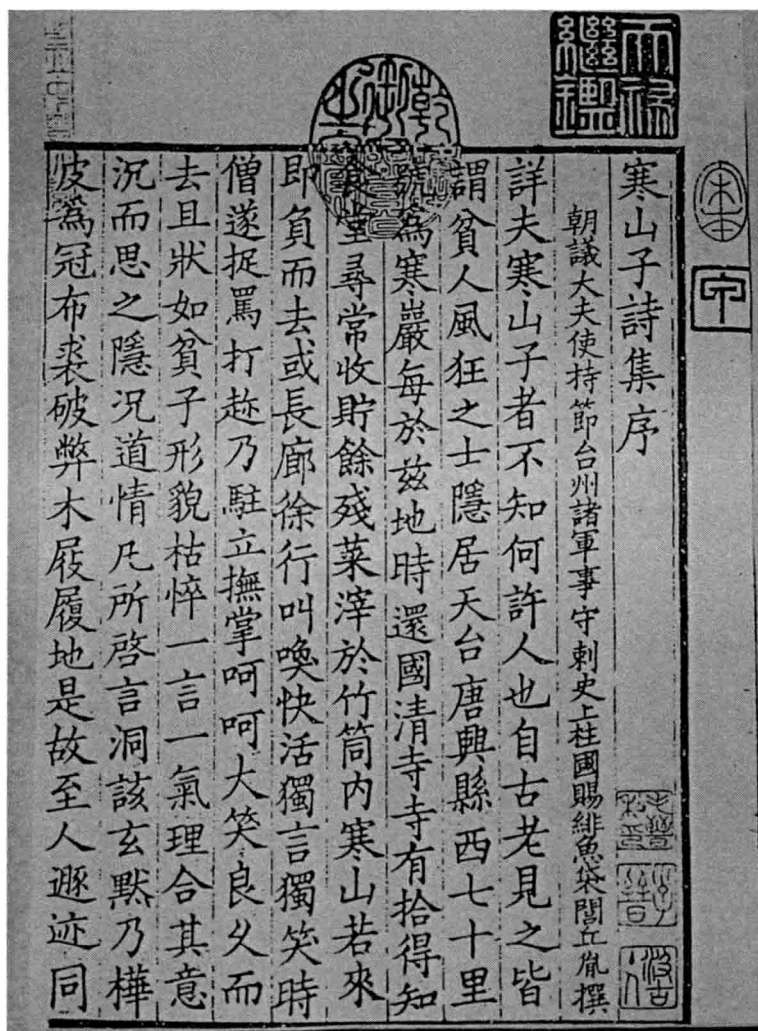 寒山子詩集序
朝議大夫使持節台州諸軍事守刺史上柱國賜緋魚袋閭丘胤撰
詳夫寒山子者不知何許人也自古老見之皆
謂貧人風狂之士隱居天台唐興縣西七十里
號為寒巖每於茲地時還國清寺寺有拾得知
食堂尋常收貯餘殘菜滓於竹筒内寒山若來
即負而去或長廊徐行叫喚快活獨言獨笑時
僧遂捉罵打趂乃駐立撫掌呵呵大笑良久而
去且狀如貧子形貌枯悴一言一氣理合其意
沉而思之隱况道情凡所啓言洞該玄默乃樺
皮爲冠布裘破弊木屐履地是故至人遯迹同
天祿繼鑑
宋本
甲